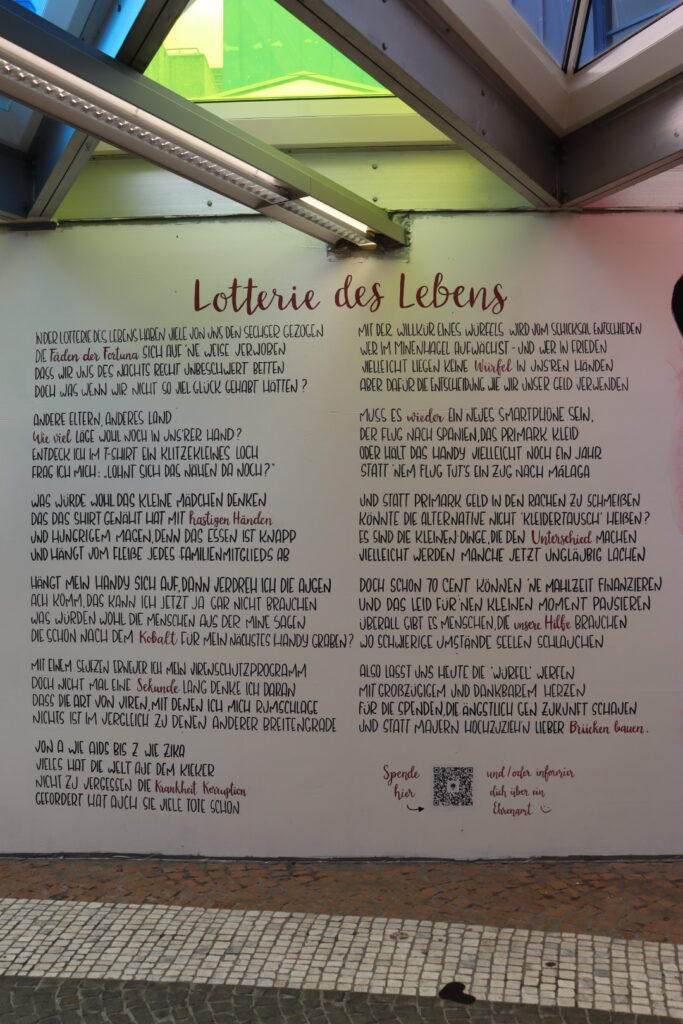 Lotterie des Lebens
IN DER LOTTERIE DES LEBENS HABEN VIELE VON UNS DEN SECHSER GEZOGEN
DIE Fäden der Fortuna SICH AUF 'NE WEISE VERWOBEN
DASS WIR UNS DES NACHTS RECHT UNBESCHWERT BETTEN
DOCH WAS WENN WIR NICHT SO VIEL GLÜCK GEHABT HÄTTEN?
ANDERE ELTERN, ANDERES LAND
Wie viel LÄGE WOHL NOCH IN UNS'RER HAND?
ENTDECK ICH IM T-SHIRT EIN KLITZEKLEINES LOCH
FRAG ICH MICH: „LOHNT SICH DAS NÄHEN DA NOCH?"
WAS WÜRDE WOHL DAS KLEINE MÄDCHEN DENKEN
DAS DAS SHIRT GENÄHT HAT MIT hastigen Händen
UND HUNGRIGEM MAGEN, DENN DAS ESSEN IST KNAPP
UND HÄNGT VOM FLEIẞE JEDES FAMILIENMITGLIEDS AB
HÄNGT MEIN HANDY SICH AUF, DANN VERDREH ICH DIE AUGEN
ACH KOMM, DAS KANN ICH JETZT JA GAR NICHT BRAUCHEN
WAS WÜRDEN WOHL DIE MENSCHEN AUS DER MINE SAGEN
DIE SCHON NACH DEM Kobalt FÜR MEIN NÄCHSTES HANDY GRABEN?
MIT EINEM SEUFZEN ERNEUER ICH MEIN VIRENSCHUTZPROGRAMM
DOCH NICHT MAL EINE Sekunde LANG DENKE ICH DARAN
DASS DIE ART VON VIREN, MIT DENEN ICH MICH RUMSCHLAGE
NICHTS IST IM VERGLEICH ZU DENEN ANDERER BREITENGRADE
VON A WIE AIDS BIS Z WIE ZIKA
VIELES HAT DIE WELT AUF DEM KIEKER
NICHT ZU VERGESSEN DIE Krankheit Korruption
GEFORDERT HAT AUCH SIE VIELE TOTE SCHON
MIT DER WILLKÜR EINES WÜRFELS WIRD VOM SCHICKSAL ENTSCHIEDEN
WER IM MINENHAGEL AUFWÄCHST - UND WER IN FRIEDEN
VIELLEICHT LIEGEN KEINE Würfel IN UNS'REN HÄNDEN
ABER DAFÜR DIE ENTSCHEIDUNG WIE WIR UNSER GELD VERWENDEN
MUSS ES wieder EIN NEUES SMARTPHONE SEIN,
DER FLUG NACH SPANIEN, DAS PRIMARK KLEID
ODER HÄLT DAS HANDY VIELLEICHT NOCH EIN JAHR
STATT 'NEM FLUG TUT'S EIN ZUG NACH MÁLAGA
UND STATT PRIMARK GELD IN DEN RACHEN ZU SCHMEIẞEN
KÖNNTE DIE ALTERNATIVE NICHT "KLEIDERTAUSCH" HEIẞEN?
ES SIND DIE KLEINEN DINGE, DIE DEN Unterschied MACHEN
VIELLEICHT WERDEN MANCHE JETZT UNGLÄUBIG LACHEN
DOCH SCHON 70 CENT KÖNNEN 'NE MAHLZEIT FINANZIEREN
UND DAS LEID FÜR 'NEN KLEINEN MOMENT PAUSIEREN
ÜBERALL GIBT ES MENSCHEN, DIE unsere Hilfe BRAUCHEN
WO SCHWIERIGE UMSTÄNDE SEELEN SCHLAUCHEN
ALSO LASST UNS HEUTE DIE "WÜRFEL" WERFEN
MIT GROẞZÜGIGEM UND DANKBAREM HERZEN
FÜR DIE SPENDEN, DIE ÄNGSTLICH GEN ZUKUNFT SCHAUEN
UND STATT MAUERN HOCHZUZIEH'N LIEBER Brücken bauen.
Spende
hier
und/oder informier
dich über ein
Ehrenamt